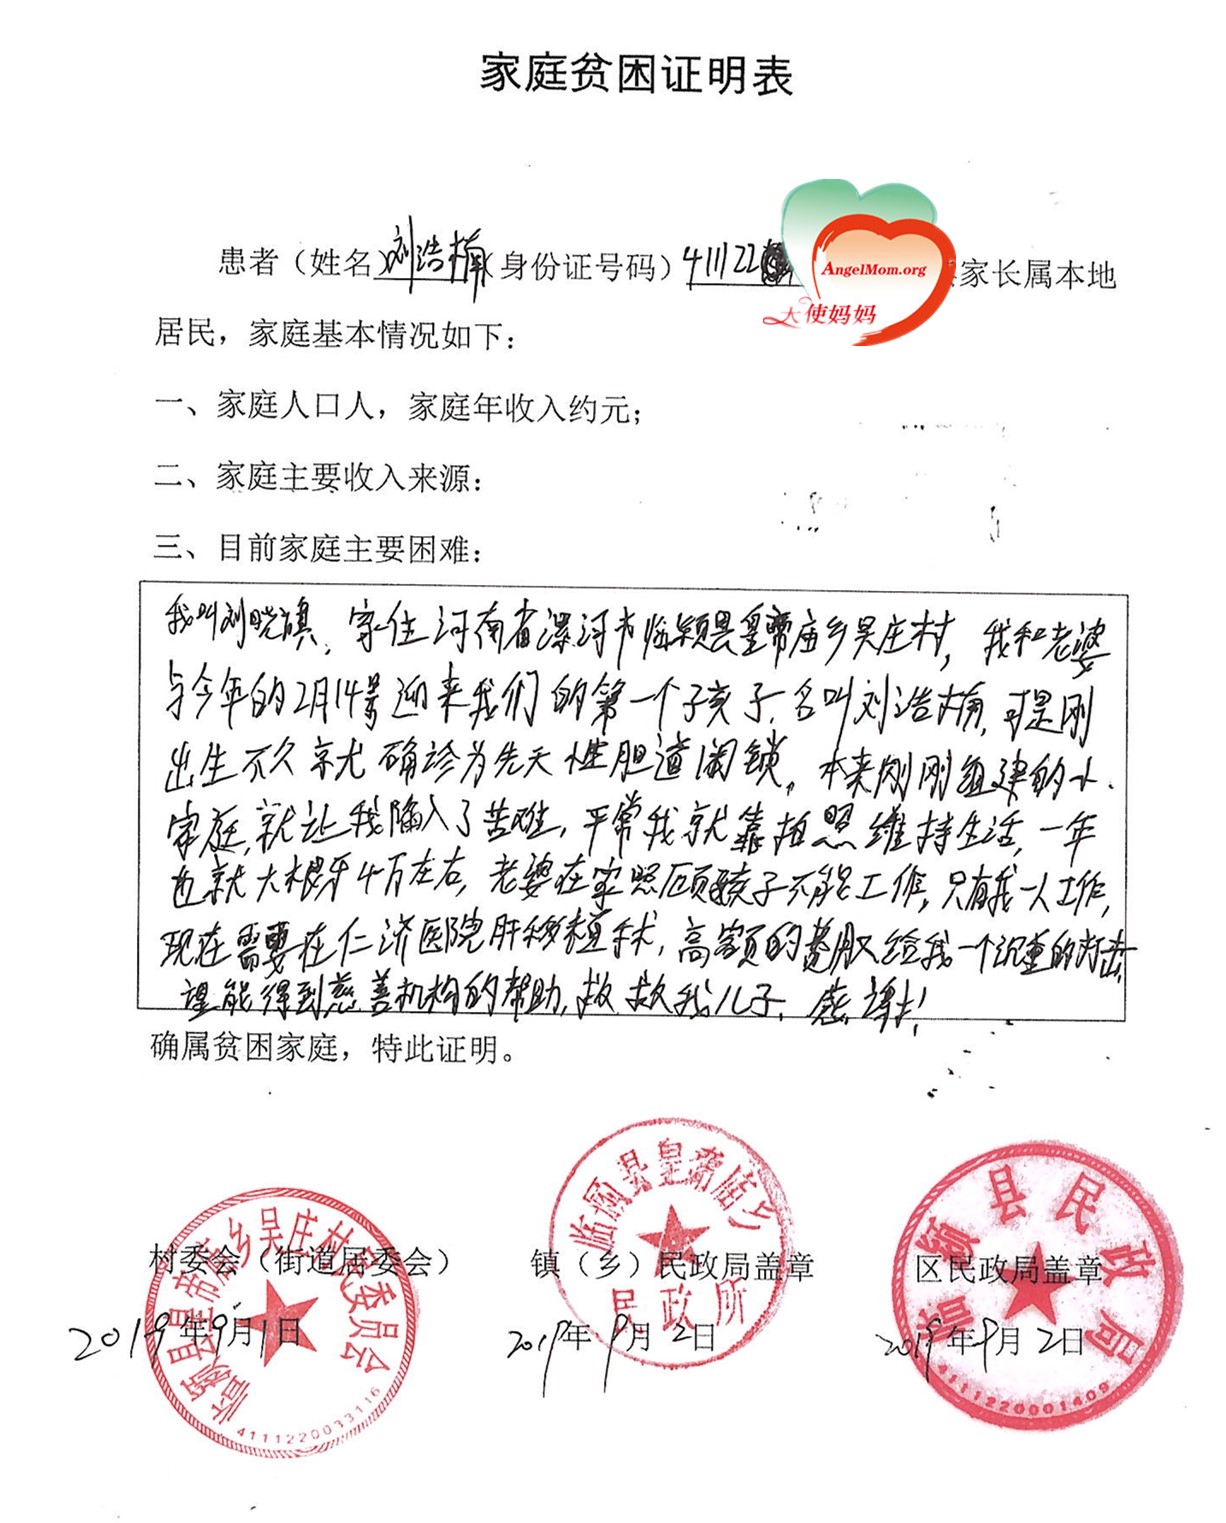 家庭贫困证明表
患者（姓名）刘浩楠（身份证号码）411122
家长属本地
AngelMom.org
天使妈妈
居民，家庭基本情况如下：
一、家庭人口人，家庭年收入约元；
二、家庭主要收入来源：
三、目前家庭主要困难：
我叫刘晓旗，家住河南省漯河市临颍县皇帝庙乡吴庄村，我和老婆
与今年的2月14号迎来我们的第一个孩子，名叫刘浩楠，可是刚
出生不久就确诊为先天性胆道闭锁。本来刚刚组建的小
家庭，就让我陷入了苦难，平常我就靠拍照维持生活，一年
也就大概4万左右，老婆在家照顾孩子不能工作，只有我一人工作，
现在需要在仁济医院肝移植手术，高额的费用又给我一个沉重的打击，
望能得到慈善机构的帮助，救救我儿子，感谢！
确属贫困家庭，特此证明。
村委会（街道居委会）
镇（乡）民政局盖章
区民政局盖章
2019年9月1日
2019年9月2日
2019年9月2日
临颍县皇帝庙乡吴庄村民委员会
4111220033116
临颍县皇帝庙乡
民政所
临颍县民政局
4111220001409